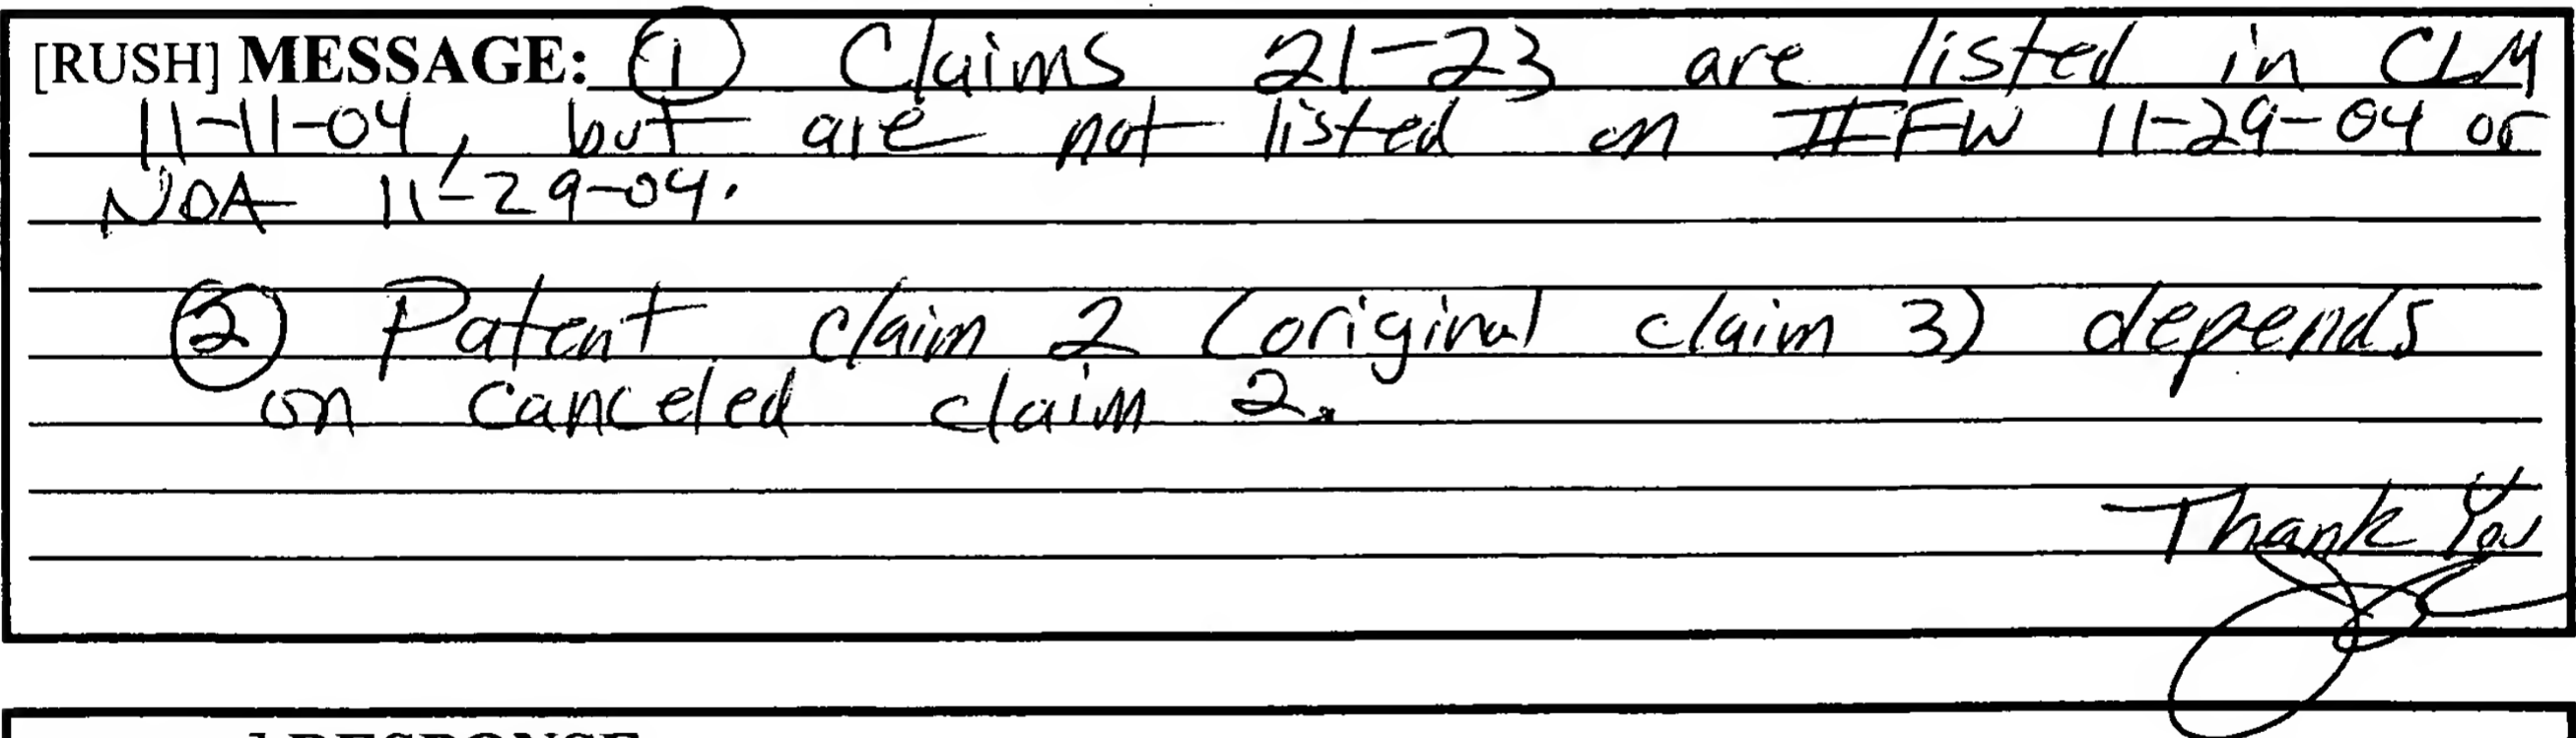 [RUSH] MESSAGE: ① Claims 21-23 are listed in CLM
11-11-04, but are not listed on IIFW 11-29-04 or
NOA 11-29-04.
② Patent claim 2 (original claim 3) depends
on canceled claim 2.
Thank You
] RESPONSE